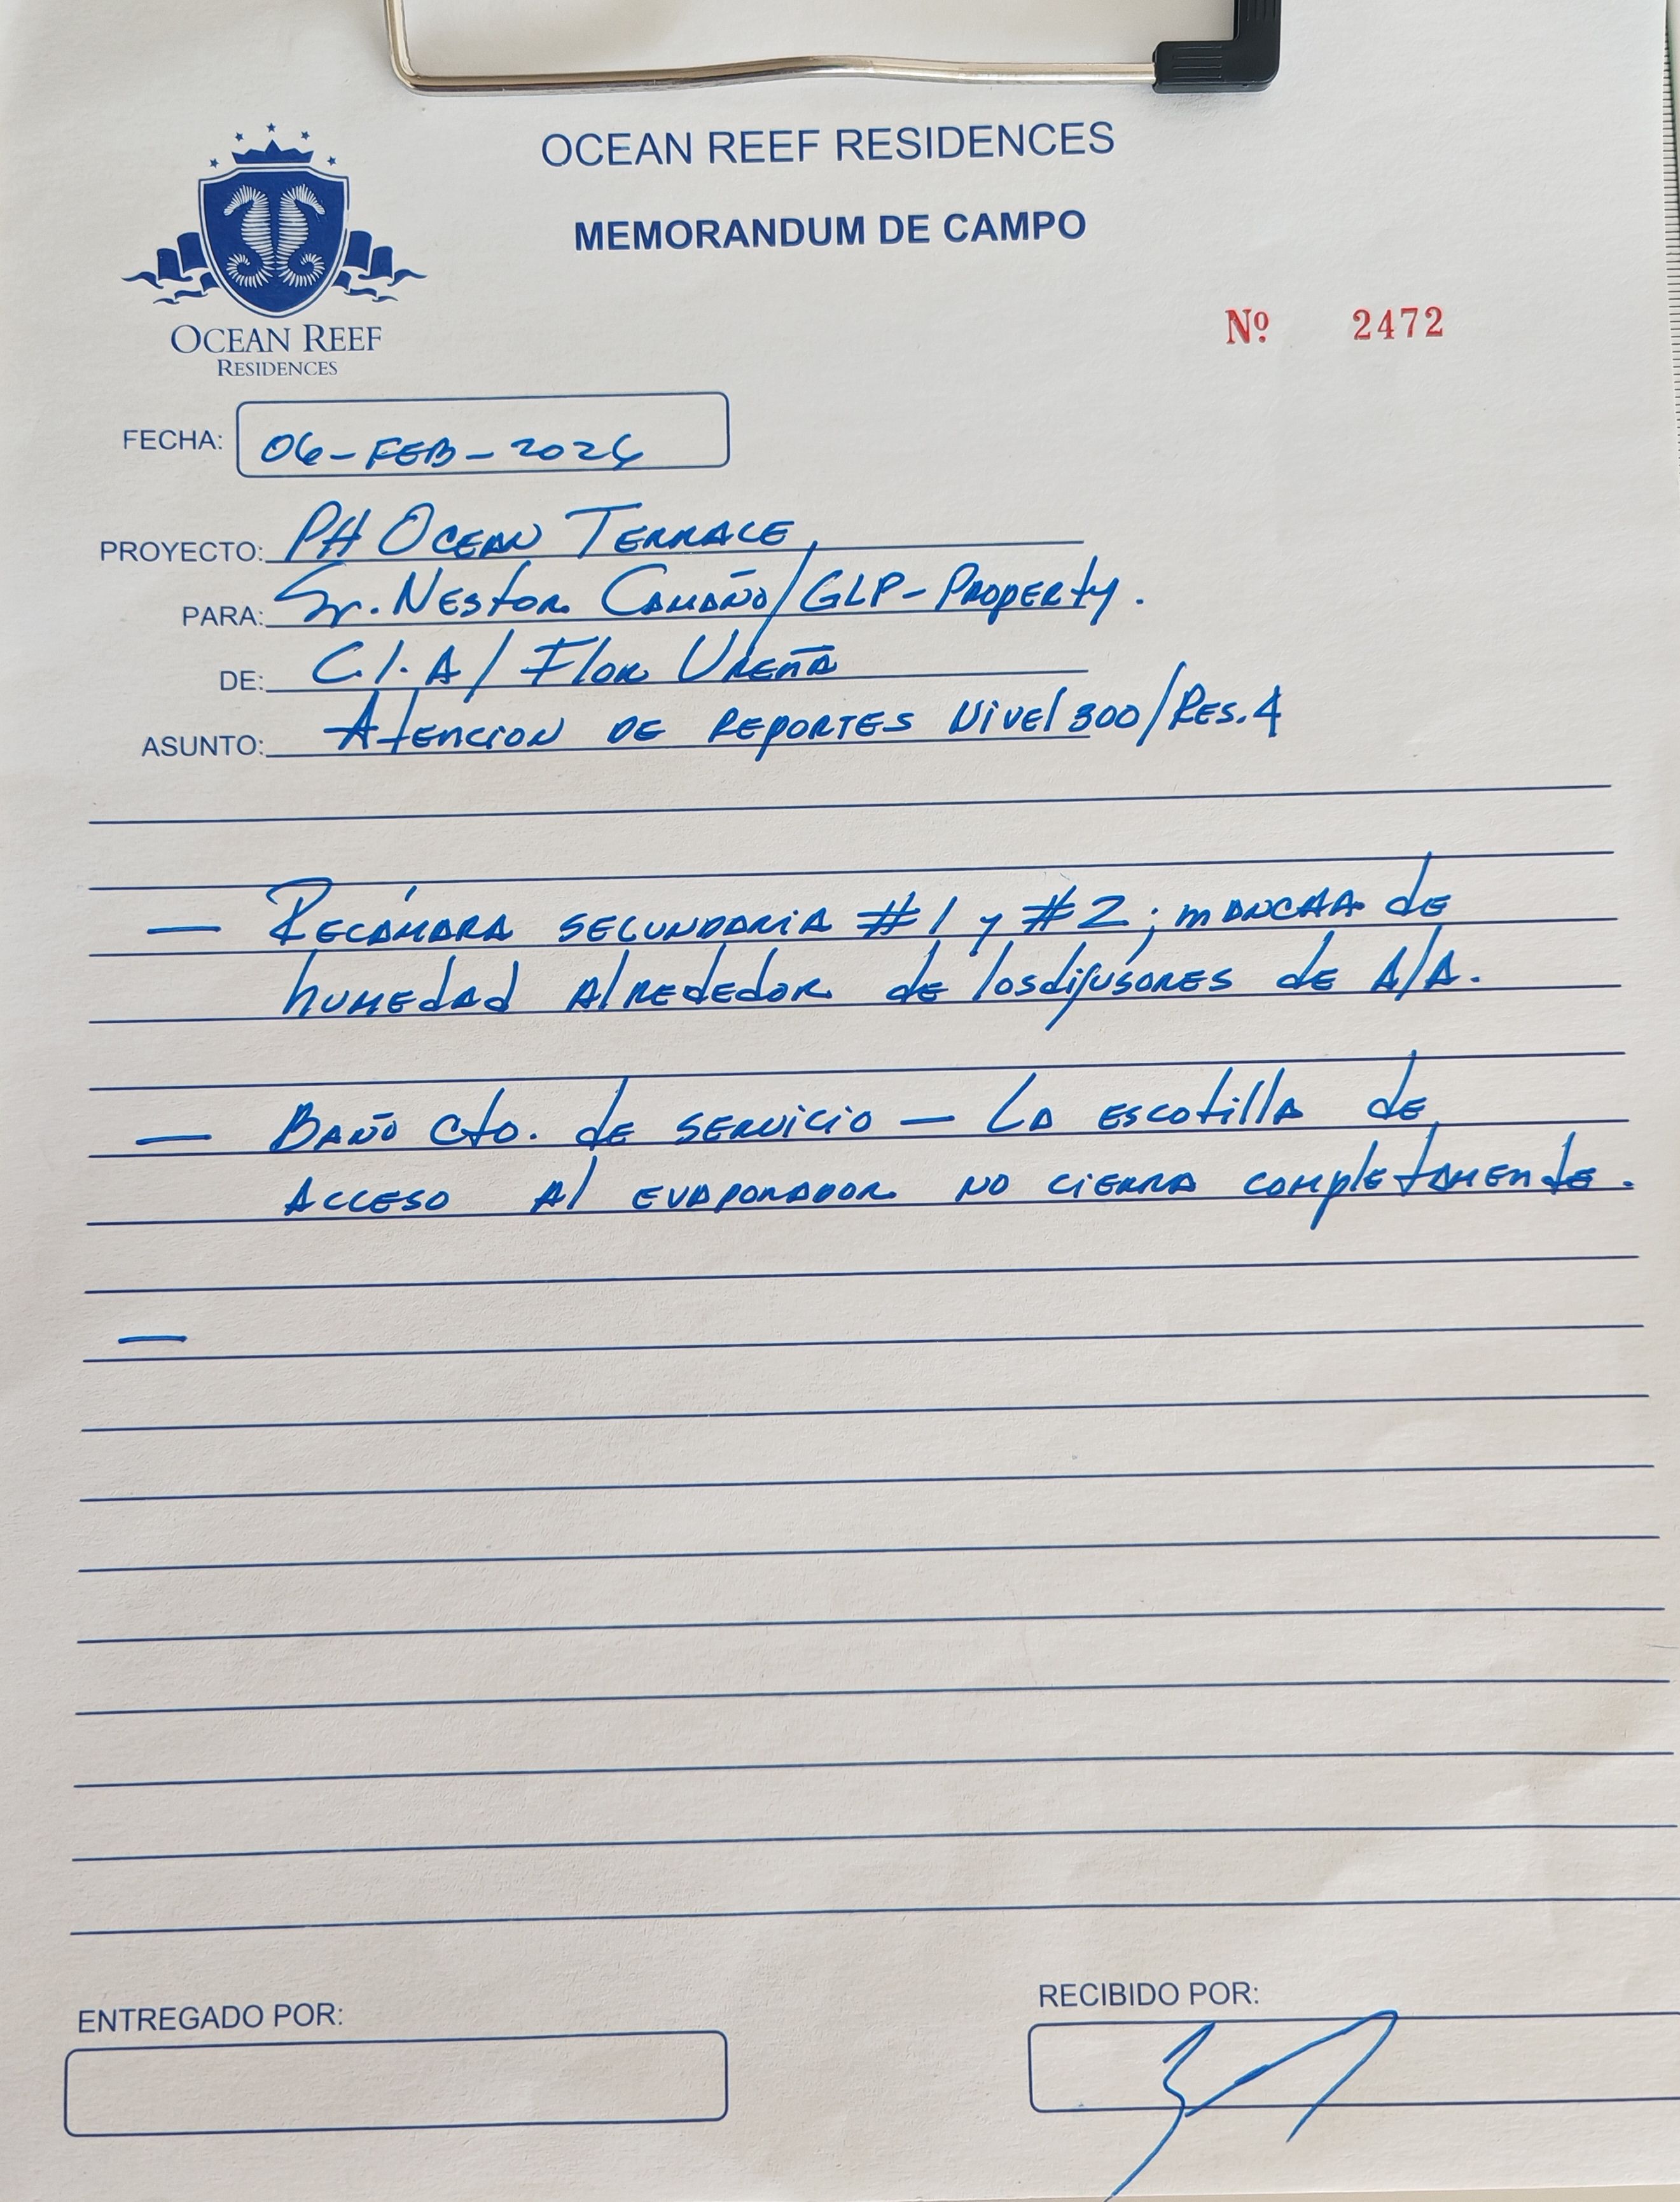 OCEAN REEF RESIDENCES
MEMORANDUM DE CAMPO
OCEAN REEF
RESIDENCES
Nº 2472
FECHA: 06-FEB-2026
PROYECTO: PH OCEAN TERRACE
PARA: Sr. NEStOR CAMAÑO/GLP-PROPERty.
DE: C.I.A/ FlOR UREÑA
ASUNTO: AtENCION DE REPORTES NivEl 300/RES.4
— RECÁMARA SECUNDARIA #1 y #2; mANCHA de
hUMEdAd AlREdEdOR de losdifusORES de A/A.
— BAÑO Cto. de SERVICIO — LA ESCOtillA de
ACCESO Al EVAPORADOR NO CIERRA COMPlEtAMENtE.
—
ENTREGADO POR:
RECIBIDO POR: